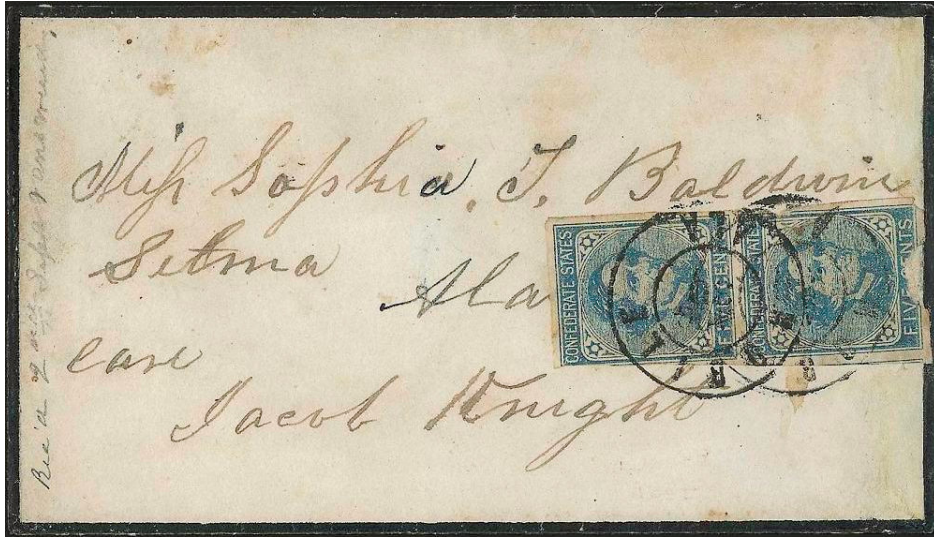 Miss Sophia. T. Baldwin
Selma
Ala
care
Jacob Knight
CONFEDERATE STATES
FIVE CENTS
CONFEDERATE STATES
FIVE CENTS
Rec'd 2